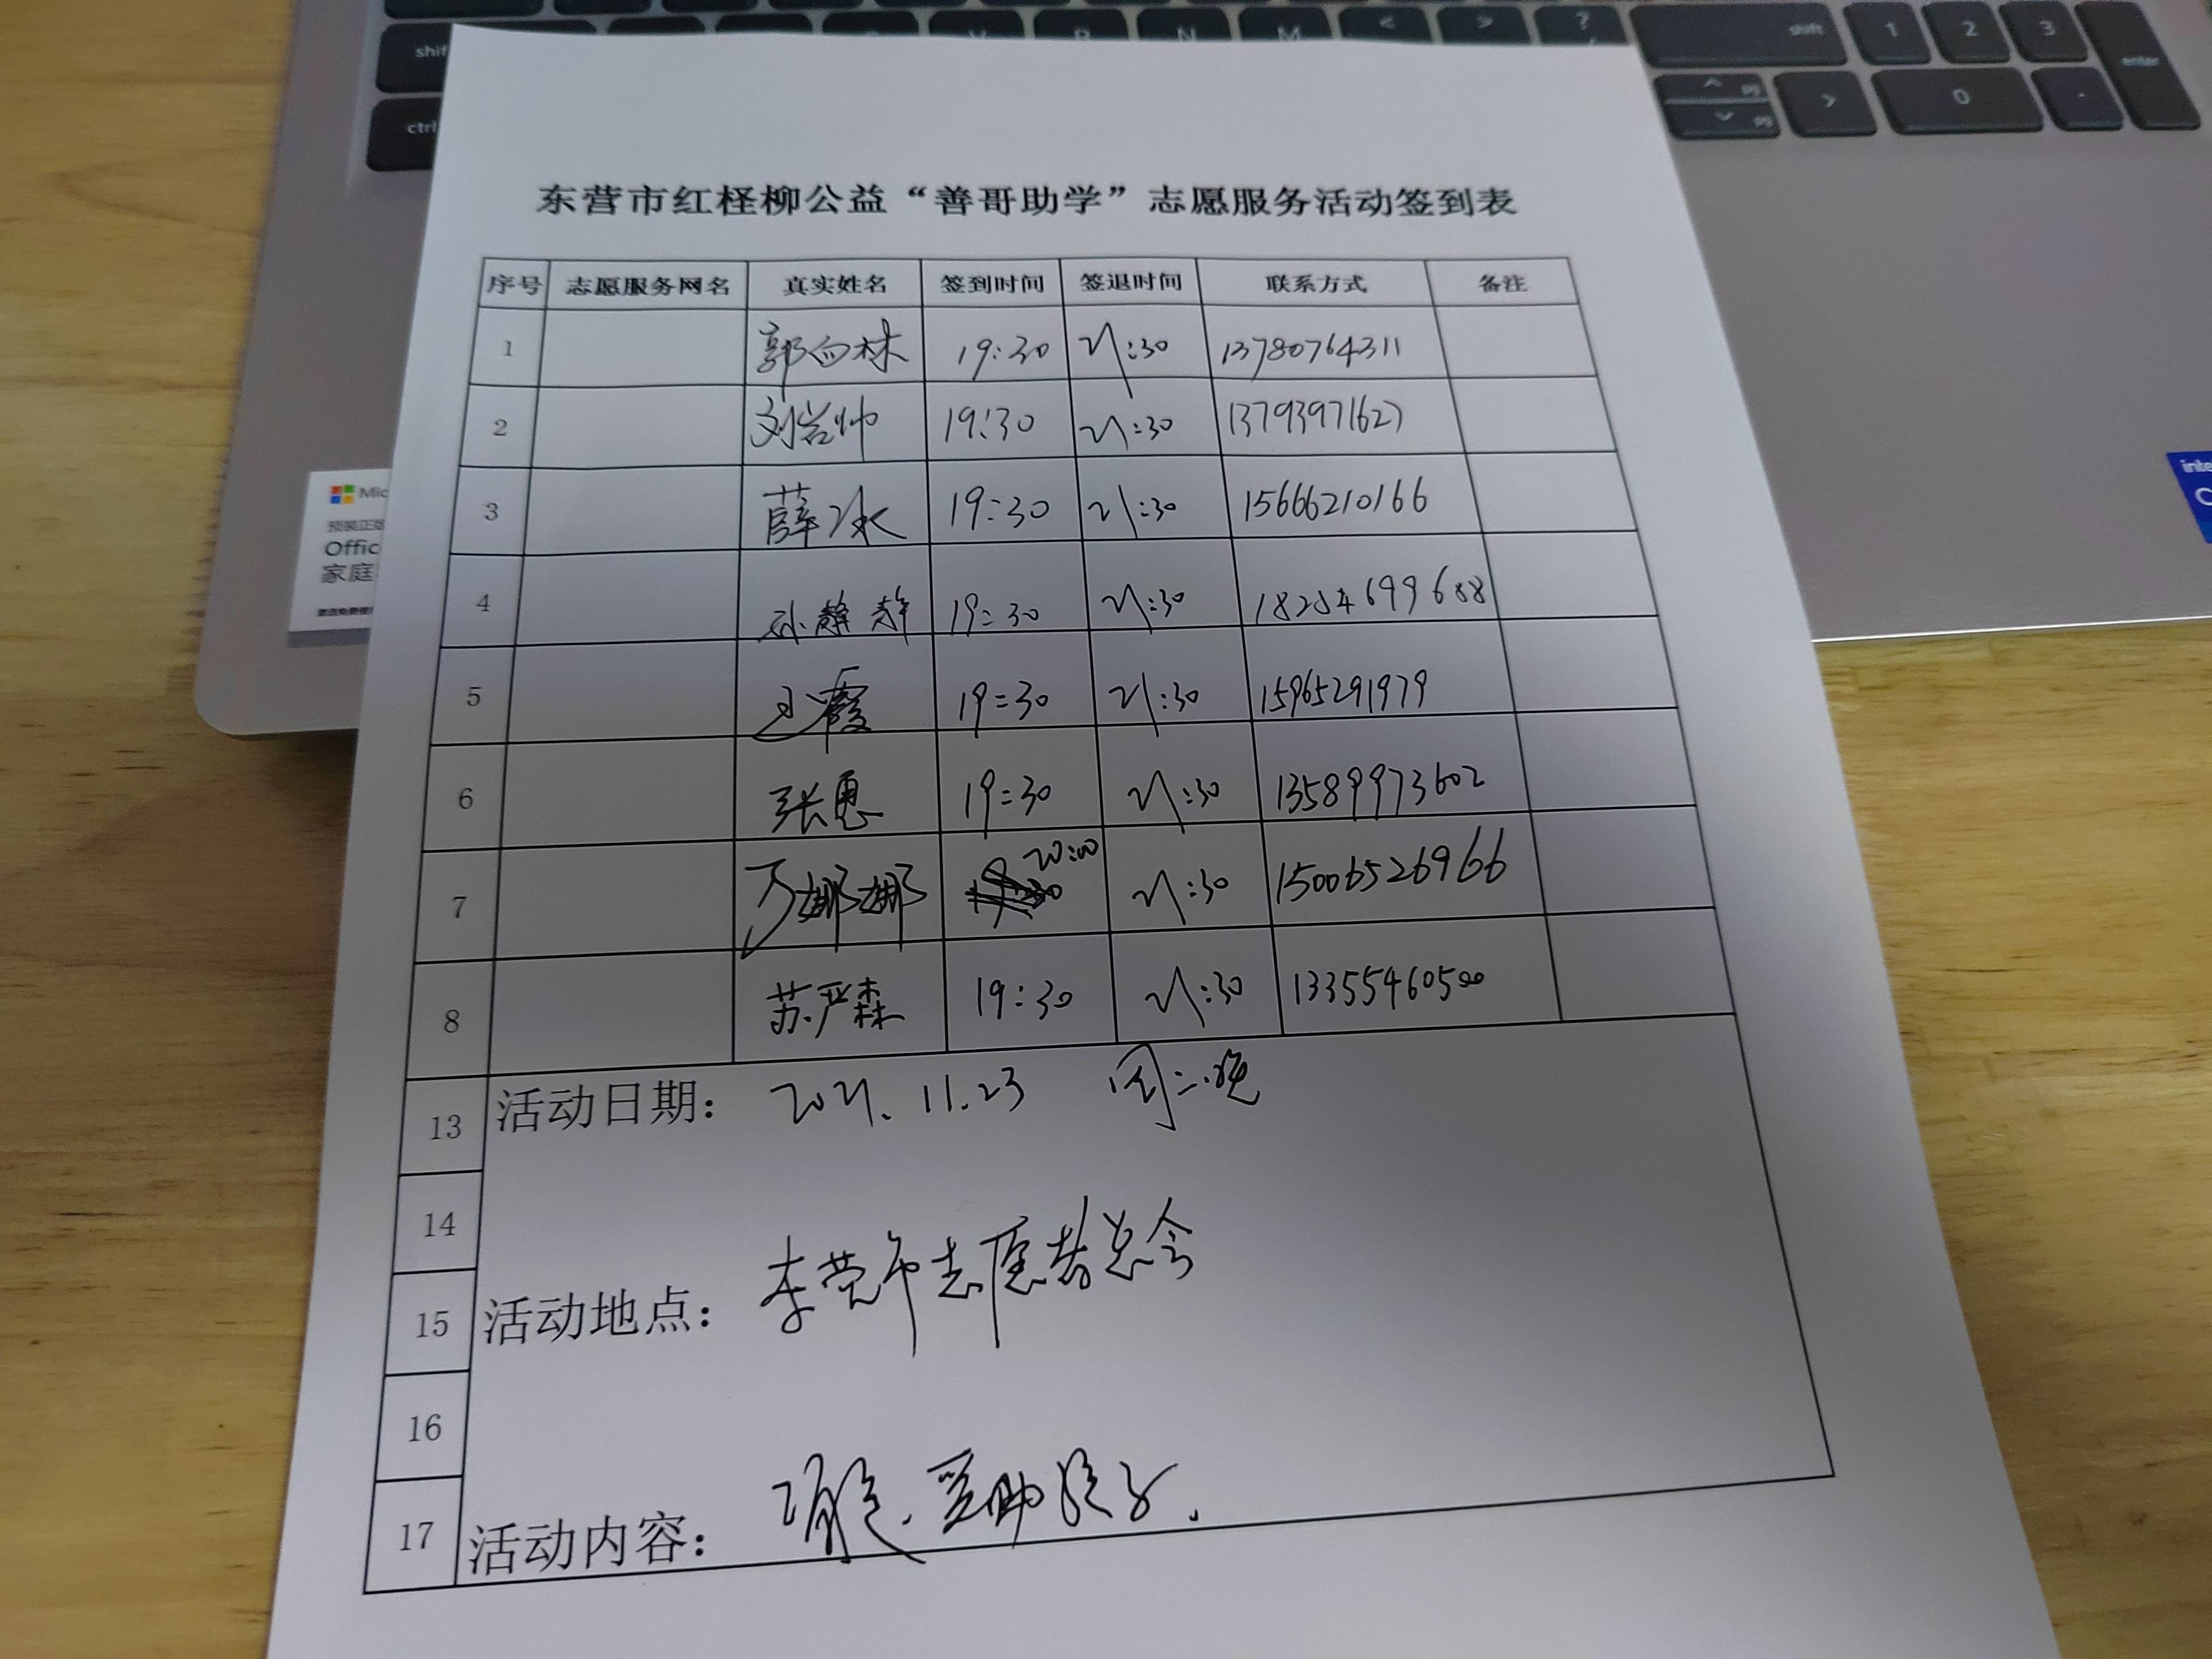 shift
1
2
3
enter
ctrl
0
东营市红柽柳公益“善哥助学”志愿服务活动签到表
序号 志愿服务网名 真实姓名 签到时间 签退时间 联系方式 备注
1 19:30 21:30 13780764311
2 刘岩帅 19:30 21:30 13793971627
3 薛冰 19:30 21:30 15666210166
4 孙静静 19:30 21:30 18254699688
5 王霞 19:30 21:30 15965291979
6 张惠 19:30 21:30 13589973602
7 万娜娜 20:00 21:30 15006526966
8 苏严森 19:30 21:30 13355460500
13 活动日期： 2021.11.23 周二晚
14
15 活动地点： 东营市志愿者总会
16
17 活动内容：
Offic
家庭
inte